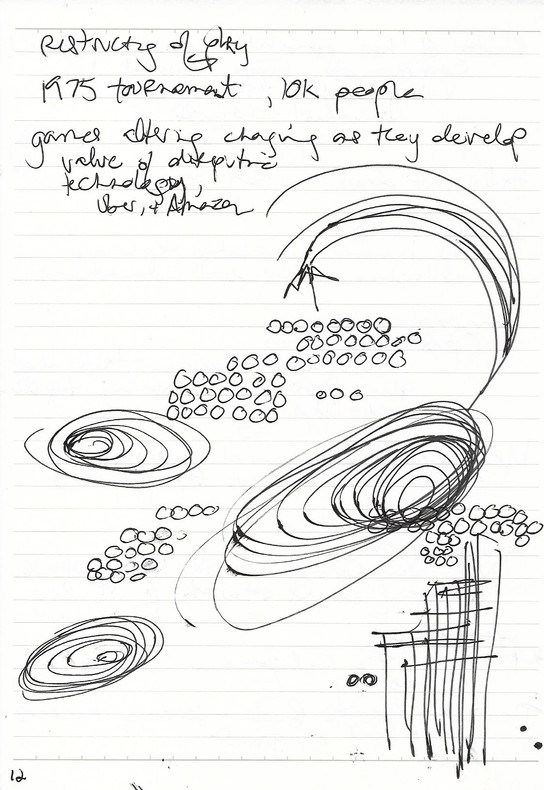 restructing of play
1975 tournament, 10k people
games altering changing as they develop
value of disruptive
technology,
Uber, + Amazon
12